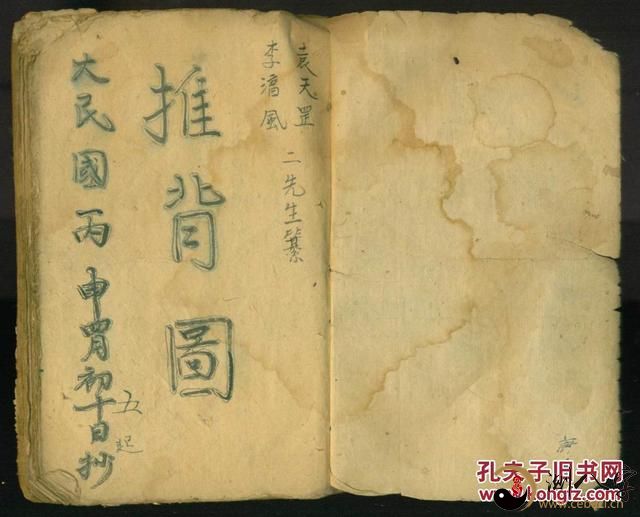 袁天罡
李淳風
二先生纂
推背圖
大民國丙申四月初十日抄
五起
孔夫子旧书网
www.cebozi.cn